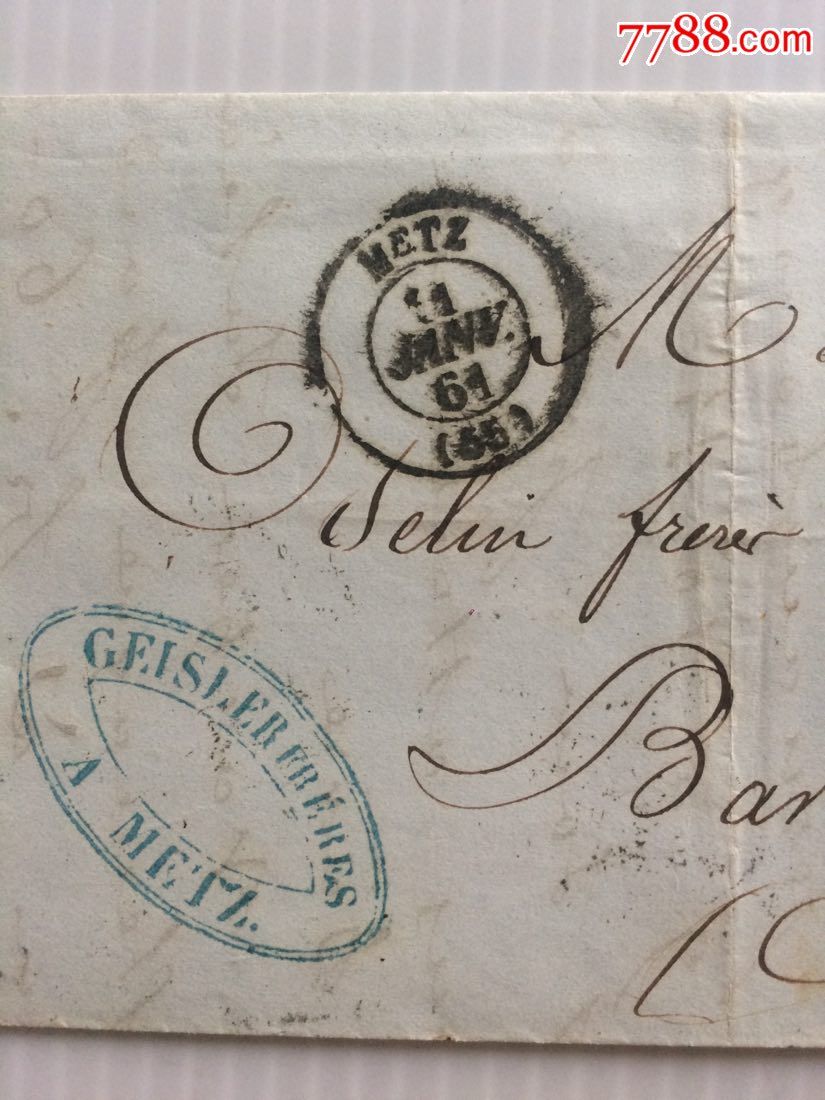 7788.com
METZ
11
JANV.
61
(55)
M
Iselin frères
Bar
GEISLER FRÉRES
A METZ.